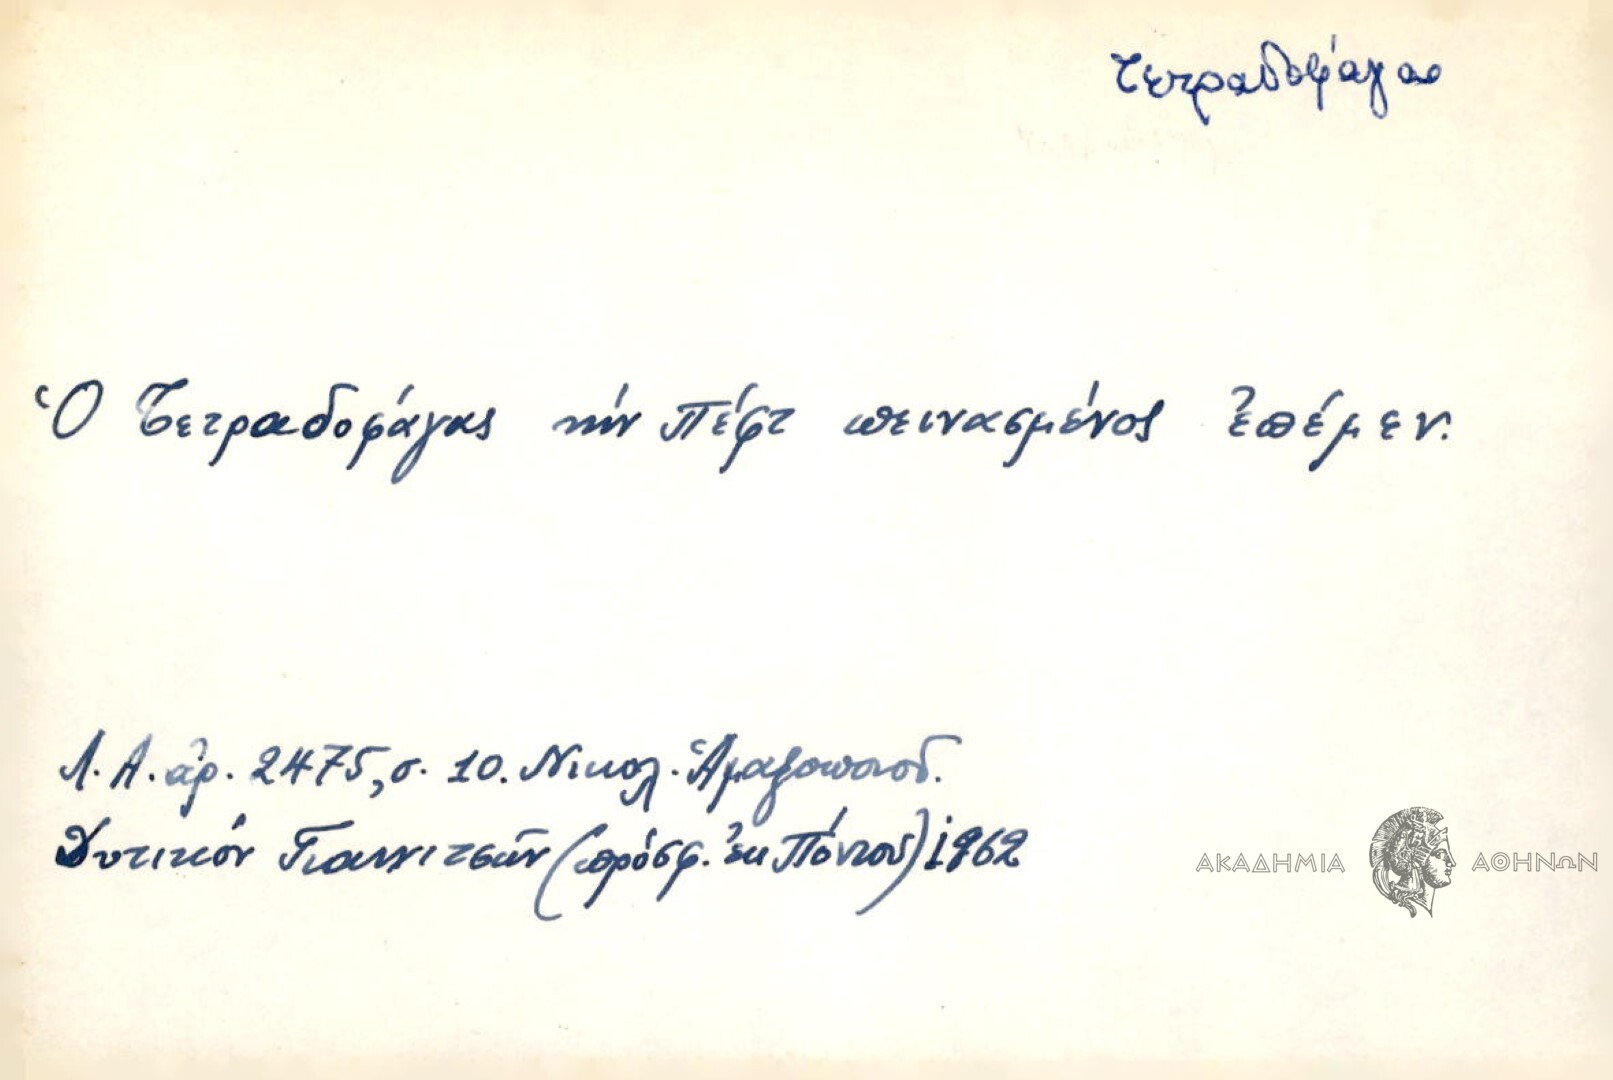 Τετραδοφάγας
Ὁ Τετραδοφάγας τὴν Πέφτ πεινασμένος ἐπέμεν.
Λ.Α. ἀρ. 2475, σ. 10. Νικολ. Ἁμαξοπουλ.
Δυτικόν Γιαννιτσῶν (πρόσφ. ἐκ Πόντου) 1962
ΑΚΑΔΗΜΙΑ ΑΘΗΝΩΝ